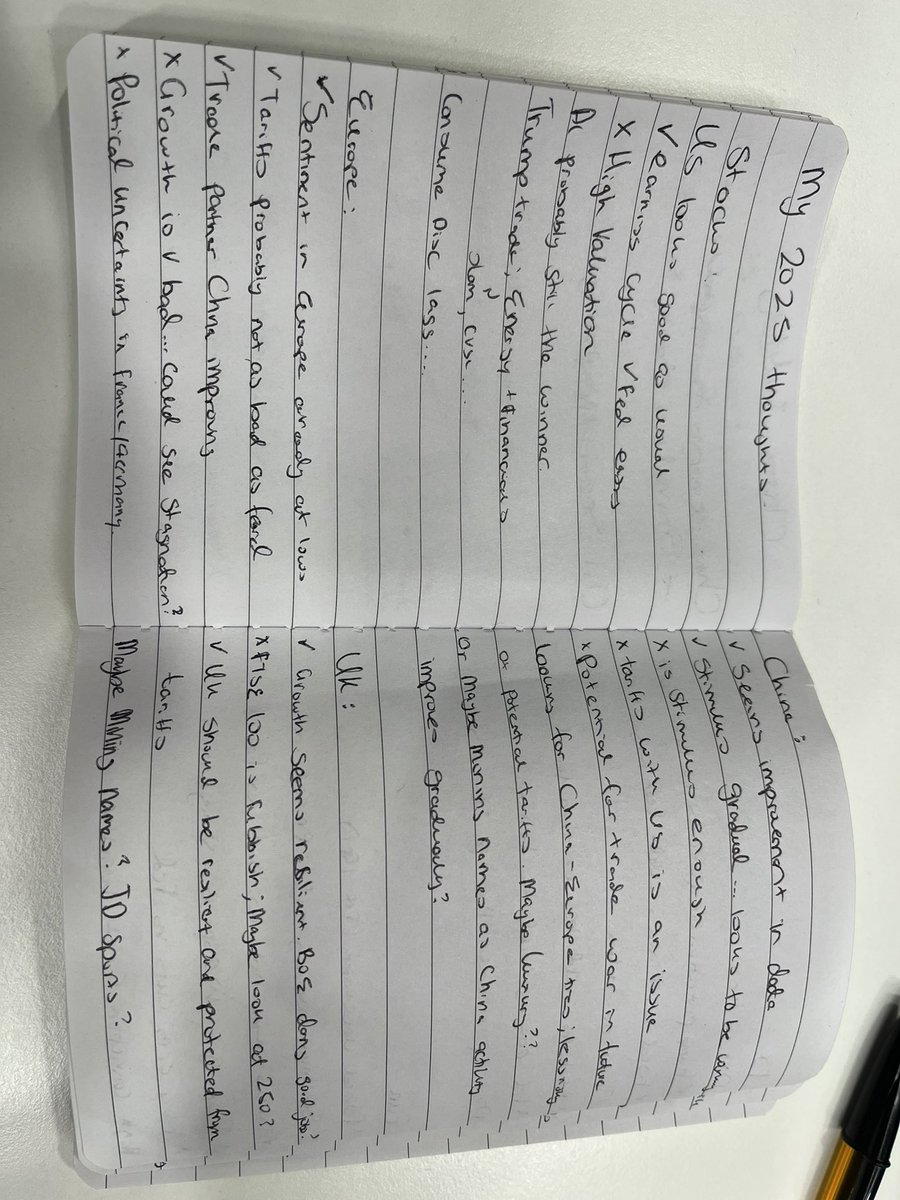 My 2025 thoughts.
Stocks:
US looks good as usual
✓ earnings cycle ✓ Fed easing
x High Valuation
AI probably still the winner.
Trump trade; Energy + Financials
Consume Disc lags...
Europe:
✓ Sentiment in Europe already at lows
✓ Tariffs probably not as bad as feared
✓ Trade partner China improving
x Growth is v bad... could see Stagnation?
x Political uncertainty in France/Germany.
China:
✓ Seeing improvement in data
✓ Stimulus gradual... looks to be
x is stimulus enough
x tariffs with US is an issue
x Potential for trade war in future
looking for China-Europe ties;
or potential tariffs. Maybe luxury??
Or maybe mining names as China activity
improves gradually?
UK:
✓ Growth seems resilient. BOE doing good job.
x FTSE 100 is rubbish; Maybe look at 250?
✓ UK should be resilient and protected from
tariffs
Maybe Mining names? JD Sports?